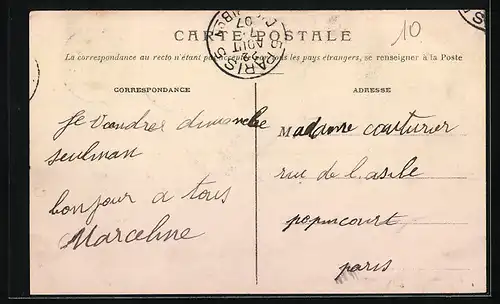 CARTE POSTALE
10
La correspondance au recto n'étant pas acceptée par tous les pays étrangers, se renseigner à la Poste
PARIS
AOUT
07
CORRESPONDANCE
Je viendrer dimanche
seulman
bonjour a tous
Marceline
ADRESSE
Madame couturier
rue de l.asile
popincourt
paris